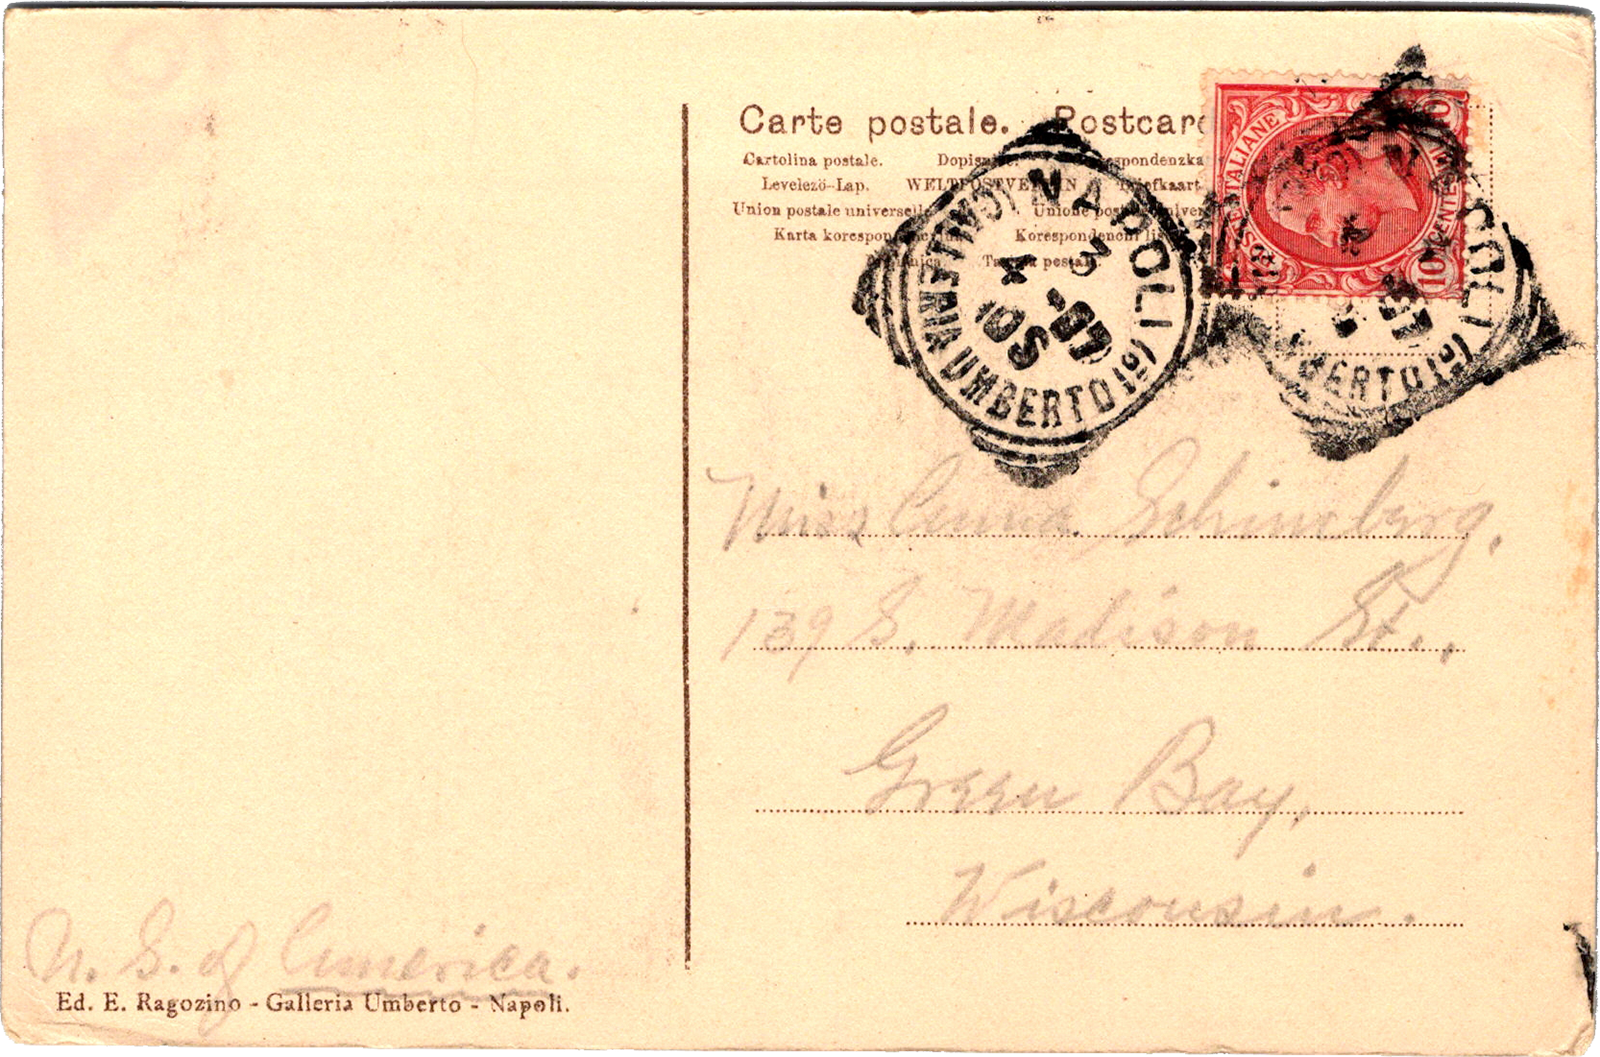 Carte postale. Postcard
Cartolina postale. Dopisnice.
Levelező-Lap. WELTPOSTVEREIN Briefkaart
Union postale universelle Unione postale
Karta korespondencyjna Korespondenční
NAPOLI
(GALLERIA UMBERTO Iº)
4
10 S
POSTE ITALIANE
CENTESIMI 10
Miss Anna Schineberg.
139 S. Madison St.,
Green Bay,
Wisconsin.
U. S. of America.
Ed. E. Ragozino - Galleria Umberto - Napoli.